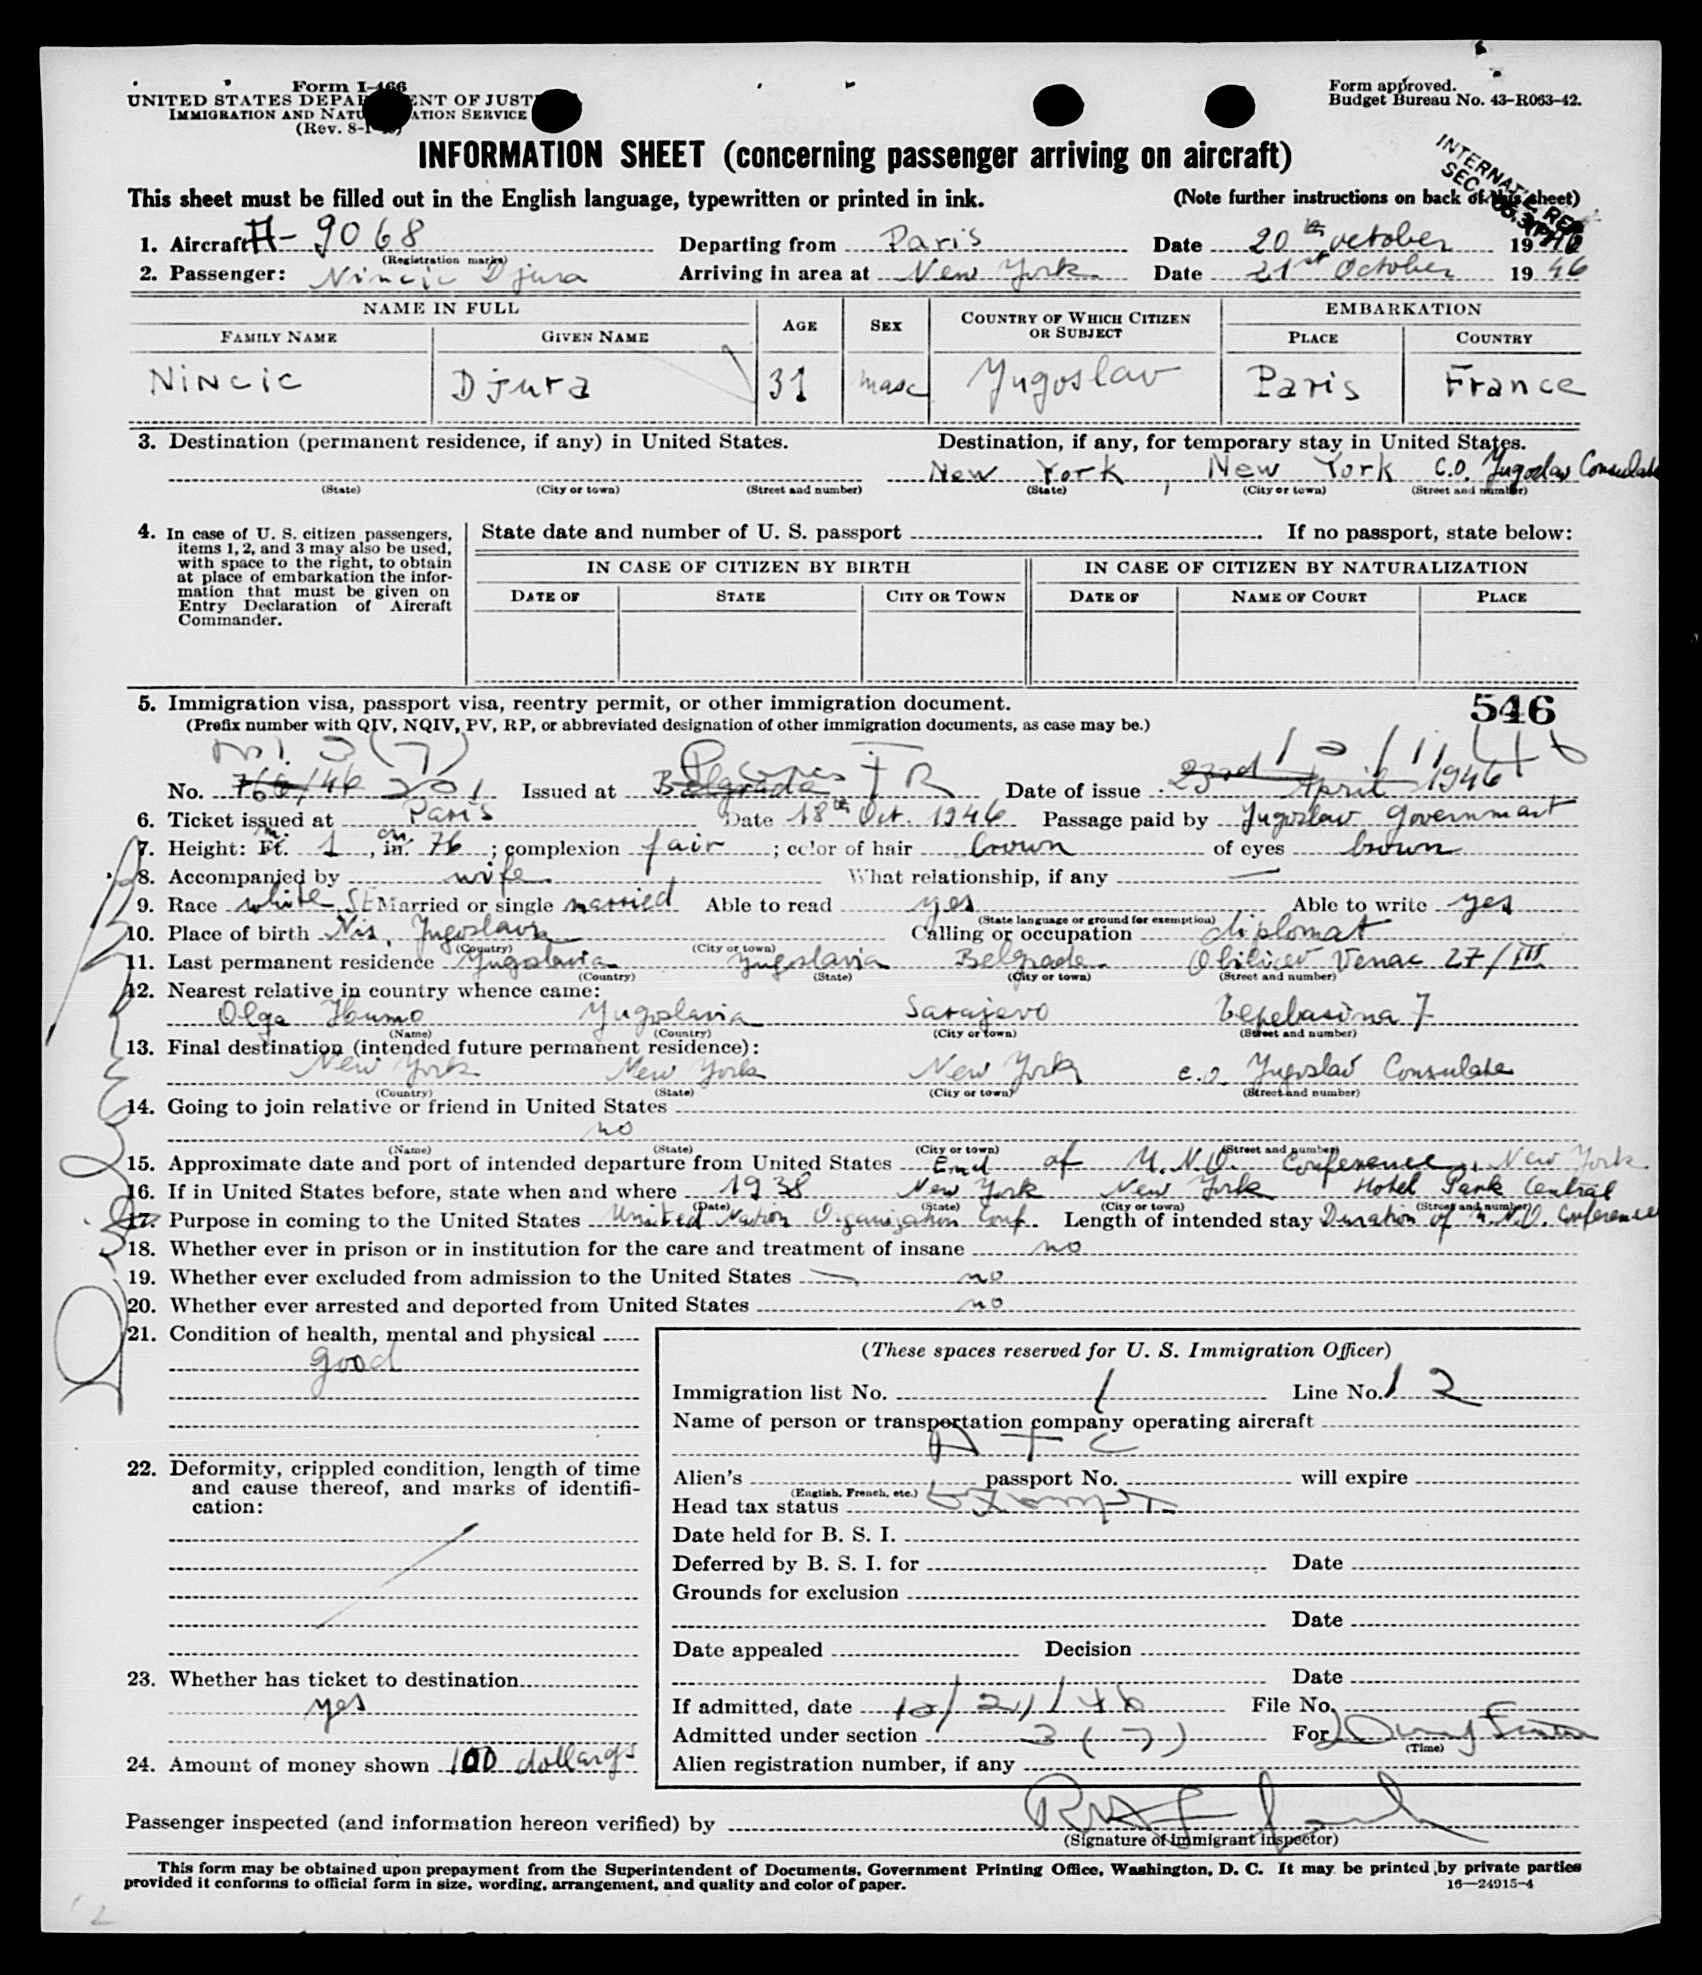 Form I-466
UNITED STATES DEPARTMENT OF JUSTICE
IMMIGRATION AND NATURALIZATION SERVICE
(Rev. 8-1-
Form approved.
Budget Bureau No. 43-R063-42.
INFORMATION SHEET (concerning passenger arriving on aircraft)
This sheet must be filled out in the English language, typewritten or printed in ink. (Note further instructions on back of this sheet)
1. Aircraft 9068 (Registration marks) Departing from Paris Date 20th october 19
2. Passenger: Nincic Djura Arriving in area at New York Date 21st October 1946
NAME IN FULL AGE SEX COUNTRY OF WHICH CITIZEN OR SUBJECT EMBARKATION
FAMILY NAME GIVEN NAME PLACE COUNTRY
NINCIC Djura 31 masc Yugoslav Paris France
3. Destination (permanent residence, if any) in United States. Destination, if any, for temporary stay in United States.
New York, New York C.O. Yugoslav Consulate
(State) (City or town) (Street and number) (State) (City or town) (Street and number)
4. In case of U. S. citizen passengers, items 1, 2, and 3 may also be used, with space to the right, to obtain at place of embarkation the information that must be given on Entry Declaration of Aircraft Commander.
State date and number of U. S. passport If no passport, state below:
IN CASE OF CITIZEN BY BIRTH IN CASE OF CITIZEN BY NATURALIZATION
DATE OF STATE CITY OR TOWN DATE OF NAME OF COURT PLACE
5. Immigration visa, passport visa, reentry permit, or other immigration document. 546
(Prefix number with QIV, NQIV, PV, RP, or abbreviated designation of other immigration documents, as case may be.)
3(7) Paris FR
No. 766/46 201 Issued at Belgrade Date of issue 23rd April 1946
6. Ticket issued at Paris Date 18th Oct. 1946 Passage paid by Yugoslav Government
7. Height: Ft. m. 1, in. cm. 76; complexion fair; color of hair brown of eyes brown
8. Accompanied by wife What relationship, if any —
9. Race white Married or single married Able to read yes Able to write yes
(State language or ground for exemption)
10. Place of birth Nis, Yugoslavia Calling or occupation diplomat
(Country) (City or town)
11. Last permanent residence Yugoslavia Yugoslavia Belgrade Obilicev Venac 27/III
(Country) (State) (City or town) (Street and number)
12. Nearest relative in country whence came:
Olga Humo Yugoslavia Sarajevo 7
(Name) (Country) (City or town) (Street and number)
13. Final destination (intended future permanent residence):
New York New York New York c.o. Yugoslav Consulate
(Country) (State) (City or town) (Street and number)
14. Going to join relative or friend in United States
no
(Name) (State) (City or town) (Street and number)
15. Approximate date and port of intended departure from United States End of U.N.O. Conference, New York
16. If in United States before, state when and where 1938 New York New York Hotel Park Central
(Date) (State) (City or town) (Street and number)
17. Purpose in coming to the United States United Nation Organization Conf. Length of intended stay Duration of U.N.O. Conference
18. Whether ever in prison or in institution for the care and treatment of insane no
19. Whether ever excluded from admission to the United States no
20. Whether ever arrested and deported from United States no
21. Condition of health, mental and physical
good
22. Deformity, crippled condition, length of time and cause thereof, and marks of identification:
23. Whether has ticket to destination
yes
24. Amount of money shown 100 dollars
(These spaces reserved for U. S. Immigration Officer)
Immigration list No. 1 Line No. 12
Name of person or transportation company operating aircraft
ATC
Alien's passport No. will expire
(English, French, etc.)
Head tax status Exempt
Date held for B. S. I.
Deferred by B. S. I. for Date
Grounds for exclusion
Date
Date appealed Decision
Date
If admitted, date 10/21/46 File No.
Admitted under section 3(7) For
(Time)
Alien registration number, if any
Passenger inspected (and information hereon verified) by
(Signature of immigrant inspector)
This form may be obtained upon prepayment from the Superintendent of Documents, Government Printing Office, Washington, D. C. It may be printed by private parties
provided it conforms to official form in size, wording, arrangement, and quality and color of paper. 16—24915-4